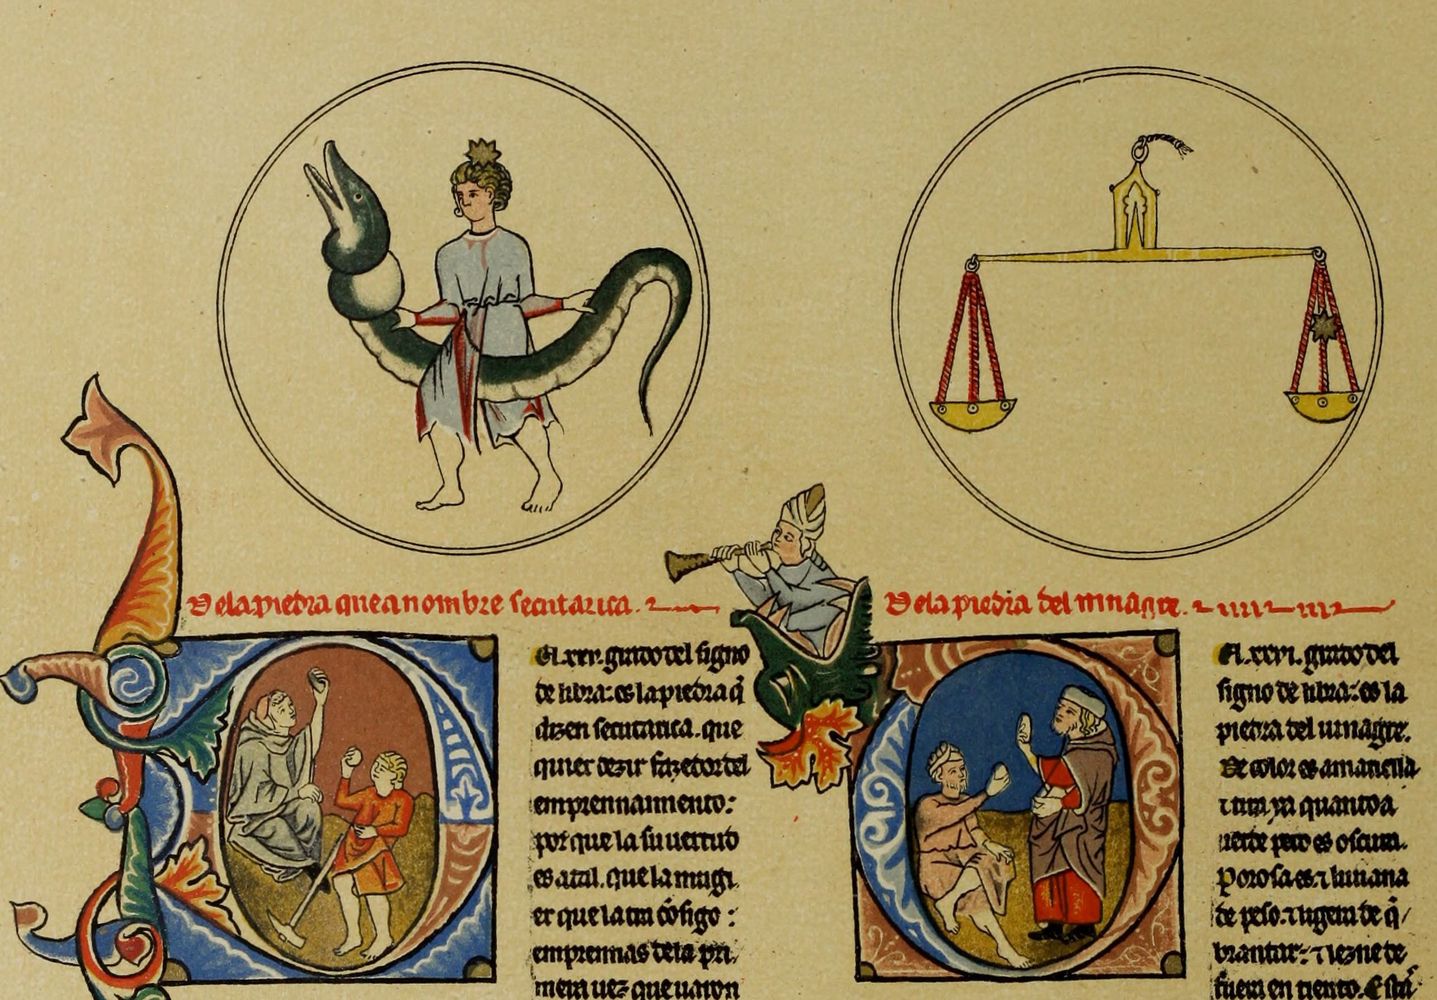 De la piedra que a nombre secutarica.
El .xxv. grado del signo
de libra: es la piedra q̄
dizen secutarica. que
quier dezir fazedor del
emprennamiento:
por que la su uertud
es atal. que la mugi
er que la tin cōsigo:
emprennas dela pri,
mera uez que uaron
De la piedra del uinagre.
El .xxvi. grado del
signo de libra: es la
piedra del uinagre.
De color es amariella
τ tira ya quanto a
uerde pero es oscura.
Porosa es. τ liuiana
de peso. τ ligera de q̄
brantar: τ uezne de
fuera en tiento. E